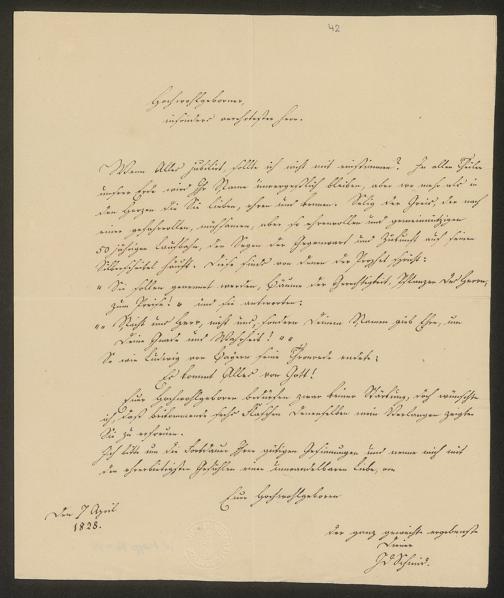 42
Hochwohlgeborner,
insonders verehrtester Herr.
Wenn Alles jubilirt, sollte ich nicht mit einstimmen? In allen Theilen
unserer Erde wird Ihr Name unvergeßlich bleiben, aber wo mehr als in
den Herzen die Sie lieben, ehren und kennen. Selig der Greis, der nach
einer gefahrvollen, mühsamen, aber so ehrenvollen und gemeinnützigen
50 jährigen Laufbahn, den Segen der Gegenwart und Zukunft auf seinen
Silberscheitel häuft. Diese sinds von denen der Prophet spricht:
"Sie sollen genennet werden, Bäume der Gerechtigkeit, Pflanzen des Herrn,
zum Preise!" und sie antworten:
"" Nicht uns Herr, nicht uns, sondern Deinem Namen gieb Ehre, um
Deine Gnade und Wahrheit! ""
So wie Ludwig von Bayern seine Thronrede endete:
Es kommt Alles von Gott!
Euer Hochwohlgeboren bedürfen zwar keiner Stärkung, doch wünschte
ich, daß beikommende sechs Flaschen Denenselben mein Verlangen zeigten
Sie zu erfreuen.
Ich bitte um die Fortdauer Ihrer gütigen Gesinnungen und nenne mich mit
den ehrerbietigsten Gefühlen einer unwandelbaren Liebe, als
Euer Hochwohlgeboren
Den 7 April
1828.
der ganz ergebenste
Diener
Schmid.